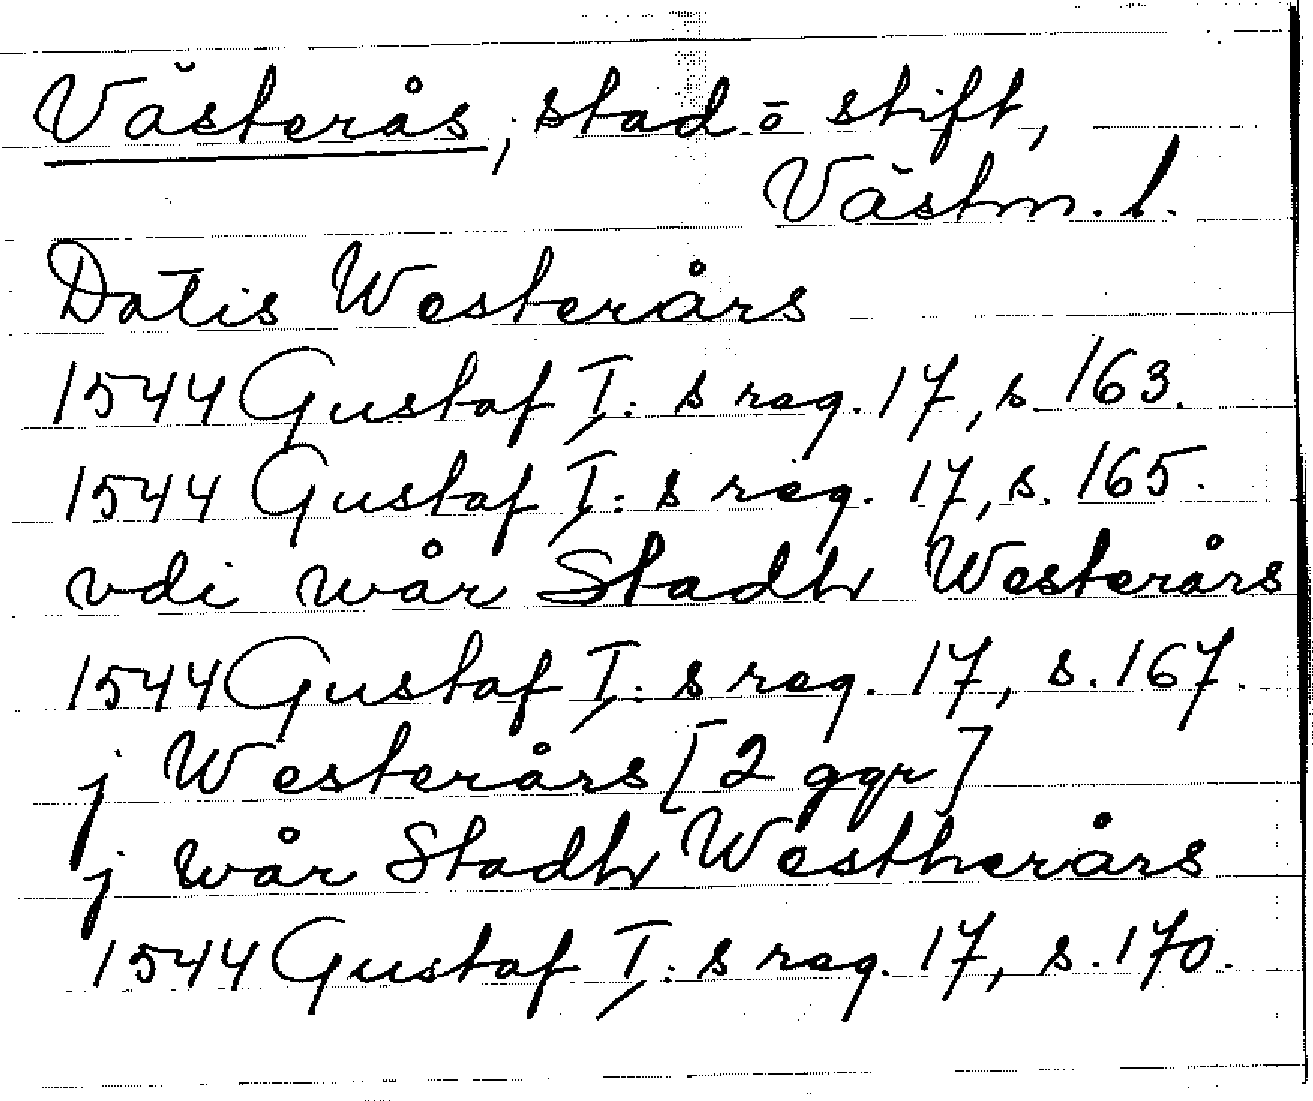 Västerås, stad ō stift,
Västm. l.
Datis Westerårs
1544 Gustaf I: s reg. 17, s. 163.
1544 Gustaf I: s reg. 17, s. 165.
vdi wår Stadh Westerårs
1544 Gustaf I: s reg. 17, s. 167.
j Westerårs [2 ggr]
j wår Stadh Westherårs
1544 Gustaf I: s reg. 17, s. 170.